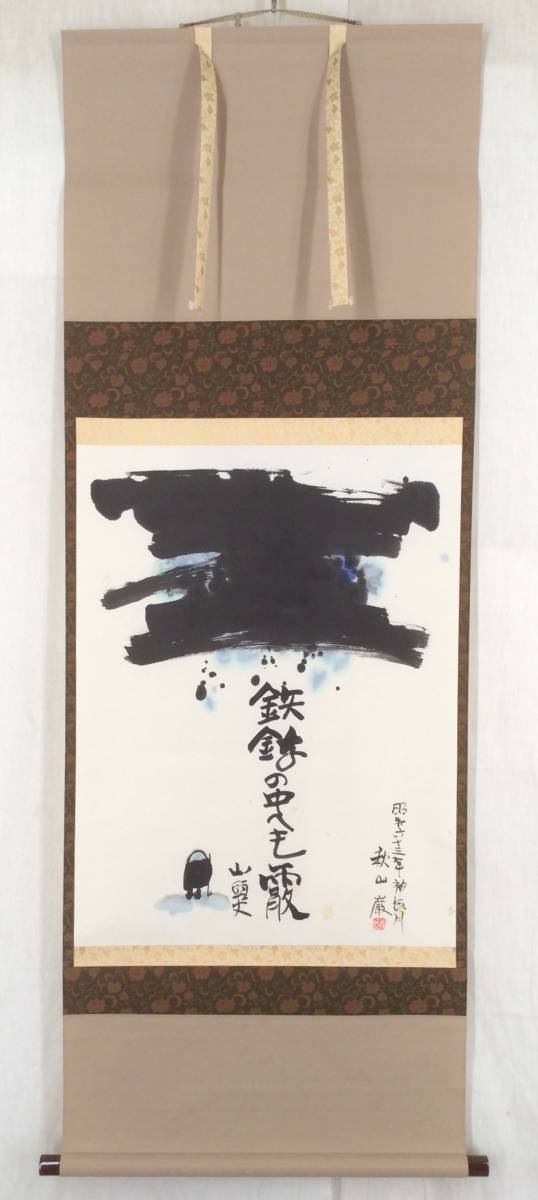 鉄鉢の中へも霰
山頭火
昭和六十三年神無月
秋山巌